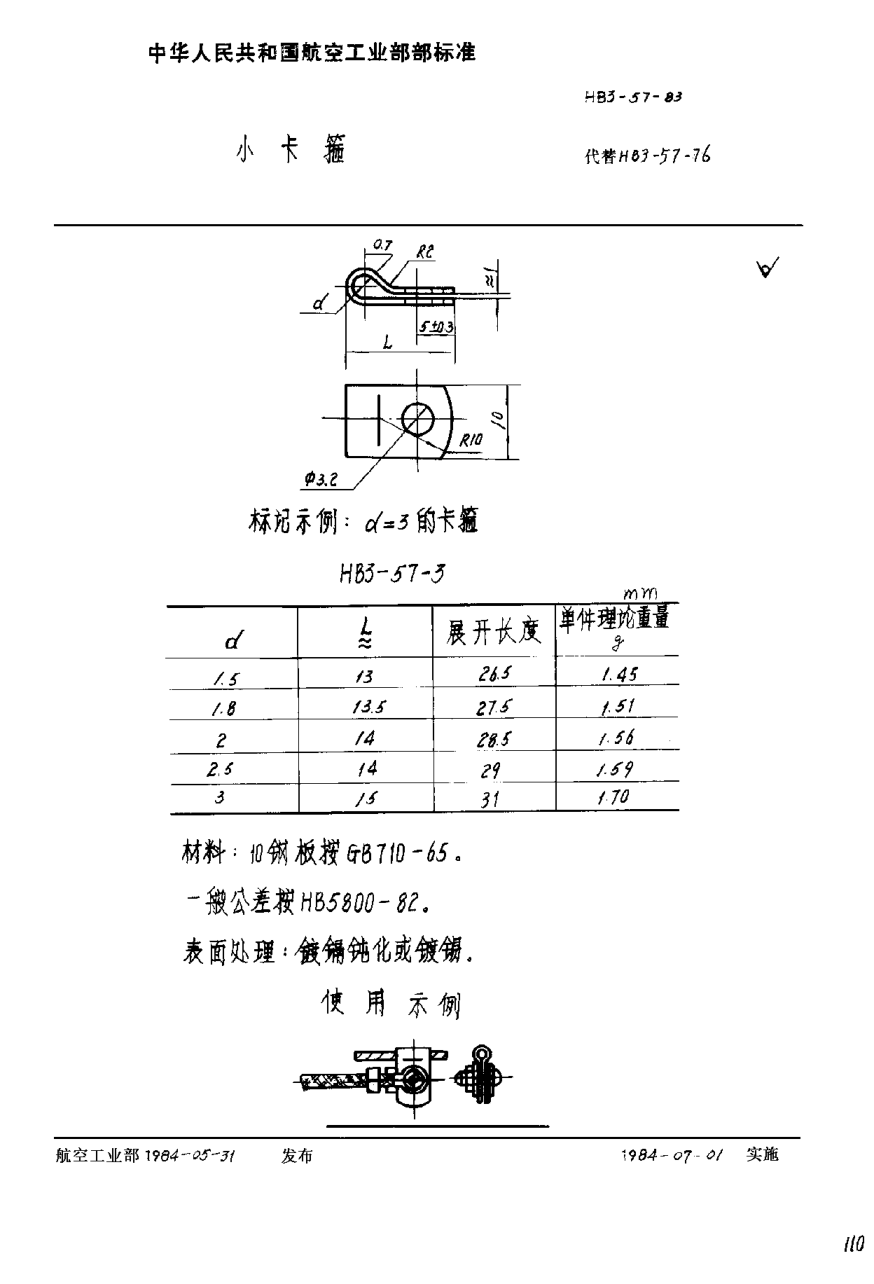 中华人民共和国航空工业部部标准
HB3-57-83
小卡箍
代替HB3-57-76
0.7
R2
≈1
d
5±0.3
L
10
R10
Φ3.2
标记示例：d=3的卡箍
HB3-57-3
mm
d L≈ 展开长度 单件理论重量 g
1.5 13 26.5 1.45
1.8 13.5 27.5 1.51
2 14 28.5 1.56
2.5 14 29 1.59
3 15 31 1.70
材料：10钢板按GB710-65。
一般公差按HB5800-82。
表面处理：镀镉钝化或镀锡。
使用示例
航空工业部1984-05-31 发布 1984-07-01 实施
110